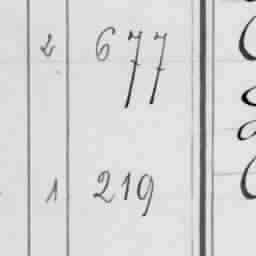 2 677
1 219